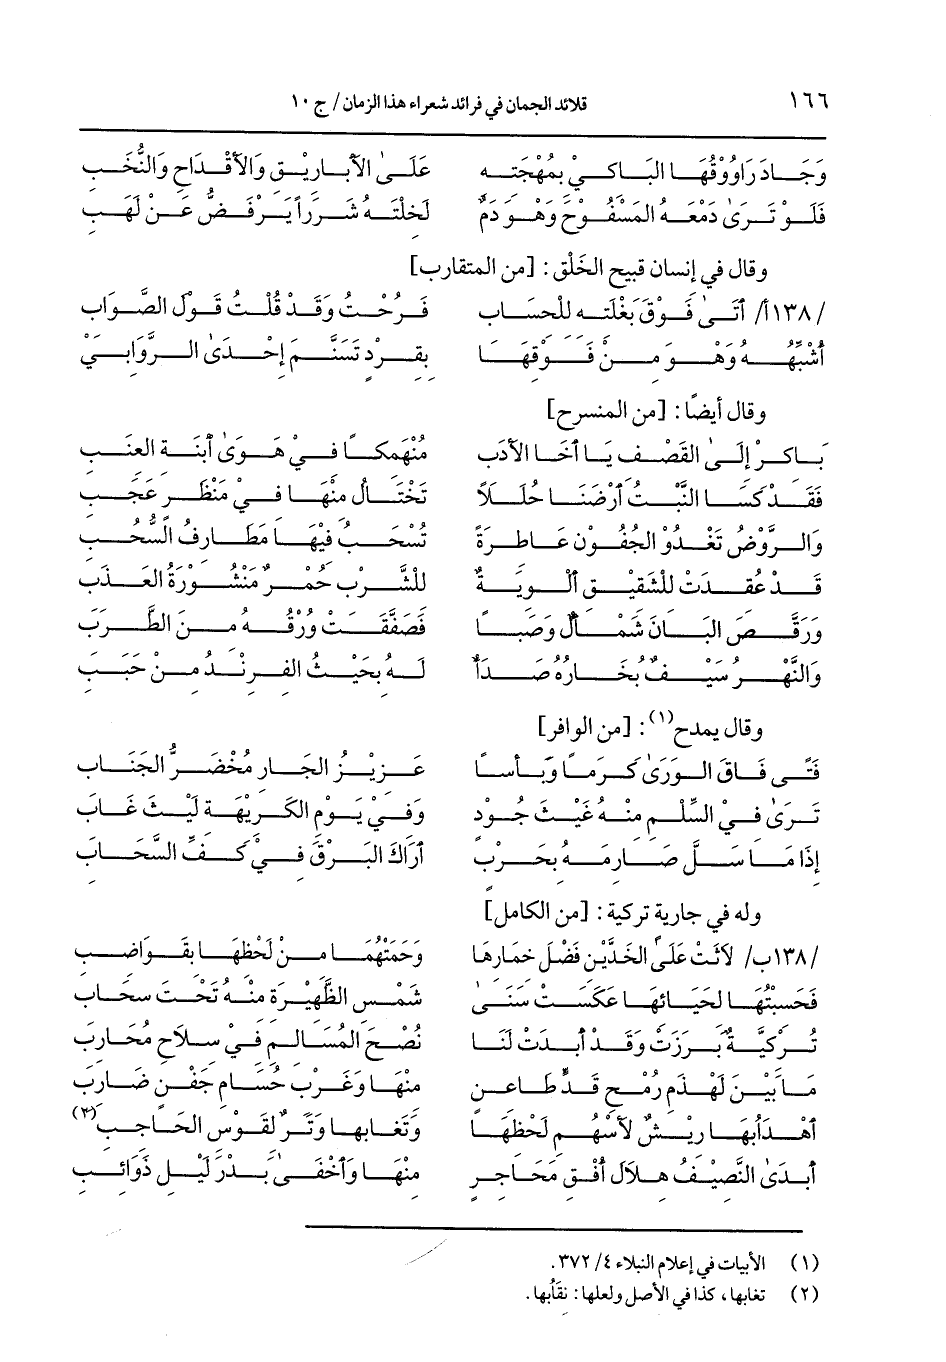 ١٦٦ قلائد الجمان في فرائد شعراء هذا الزمان/ ج ١٠
وَجَادَ رَاوُوْقُهَا البَاكِيْ بِمُهْجَتِهِ عَلَىٰ الأَبَارِيْقِ وَالأَقْدَاحِ وَالنُّخَبِ
فَلَوْ تَرَىٰ دَمْعَهُ المَسْفُوْحَ وَهْوَ دَمٌ لَخِلْتَهُ شَرَراً يَرْفَضُّ عَنْ لَهَبِ
وقال في إنسان قبيح الخَلْقِ: [من المتقارب]
/١٣٨أ/ أَتَىٰ فَوْقَ بَغْلَتِهِ لِلْحِسَابِ فَرُحْتُ وَقَدْ قُلْتُ قَوْلَ الصَّوَابِ
أُشَبِّهُهُ وَهْوَ مِنْ فَوْقِهَا بِقِرْدٍ تَسَنَّمَ إِحْدَىٰ الرَّوَابِيْ
وقال أيضًا: [من المنسرح]
بَاكِرْ إِلَىٰ القَصْفِ يَا أَخَا الأَدَبِ مُنْهَمِكًا فِيْ هَوَىٰ أبْنَةِ العِنَبِ
فَقَدْ كَسَا النَّبْتُ أَرْضَنَا حُلَلاً تَخْتَالُ مِنْهَا فِيْ مَنْظَرٍ عَجَبِ
وَالرَّوْضُ تَغْدُوْ الجُفُوْنُ عَاطِرَةً تَسْحَبُ فِيْهَا مَطَارِفُ السُّحُبِ
قَدْ عُقِدَتْ لِلْشَّقِيْقِ أَلْوِيَةٌ لِلْشَّرْبِ حُمْرٌ مَنْشُوْرَةُ العَذَبِ
وَرَقَّصَ البَانَ شَمْأَلٌ وَصَبًا فَصَفَّقَتْ وُرْقُهُ مِنَ الطَّرَبِ
وَالنَّهْرُ سَيْفٌ بُخَارُهُ صَدَأٌ لَهُ بِحَيْثُ الفِرِنْدُ مِنْ حَبَبِ
وقال يمدح(١): [من الوافر]
فَتًى فَاقَ الوَرَىٰ كَرَمًا وَبَأْسًا عَزِيْزُ الجَارِ مُخْضَرُّ الجَنَابِ
تَرَىٰ فِيْ السِّلْمِ مِنْهُ غَيْثَ جُوْدٍ وَفِيْ يَوْمِ الكَرِيْهَةِ لَيْثَ غَابِ
إِذَا مَا سَلَّ صَارِمَهُ بِحَرْبٍ أَرَاكَ البَرْقَ فِيْ كَفِّ السَّحَابِ
وله في جارية تركية: [من الكامل]
/١٣٨ب/ لَاثَتْ عَلَىٰ الخَدَّيْنِ فَضْلَ خِمَارِهَا وَحَمَتْهُمَا مِنْ لَحْظِهَا بِقَوَاضِبِ
فَحَسِبْتُهَا لِحَيَائِهَا عَكَسَتْ سَنَىٰ شَمْسِ الظَّهِيْرَةِ مِنْهُ تَحْتَ سَحَابِ
تُرْكِيَّةٌ بَرَزَتْ وَقَدْ أَبْدَتْ لَنَا نُصْحَ المُسَالِمِ فِيْ سِلَاحِ مُحَارِبِ
مَا بَيْنَ لَهْذَمِ رُمْحِ قَدٍّ طَاعِنٍ مِنْهَا وَغَرْبِ حُسَامِ جَفْنٍ ضَارِبِ
أَهْدَابُهَا رِيْشٌ لأَسْهُمِ لَحْظِهَا وَتغابها وَتَرٌ لِقَوْسِ الحَاجِبِ(٢)
أَبْدَىٰ النَّصِيْفُ هِلَالَ أُفْقِ مَحَاجِرٍ مِنْهَا وَأَخْفَىٰ بَدْرَ لَيْلِ ذَوَائِبِ
(١) الأبيات في إعلام النبلاء ٤/ ٣٧٢.
(٢) تغابها، كذا في الأصل ولعلها: نقَابُها.